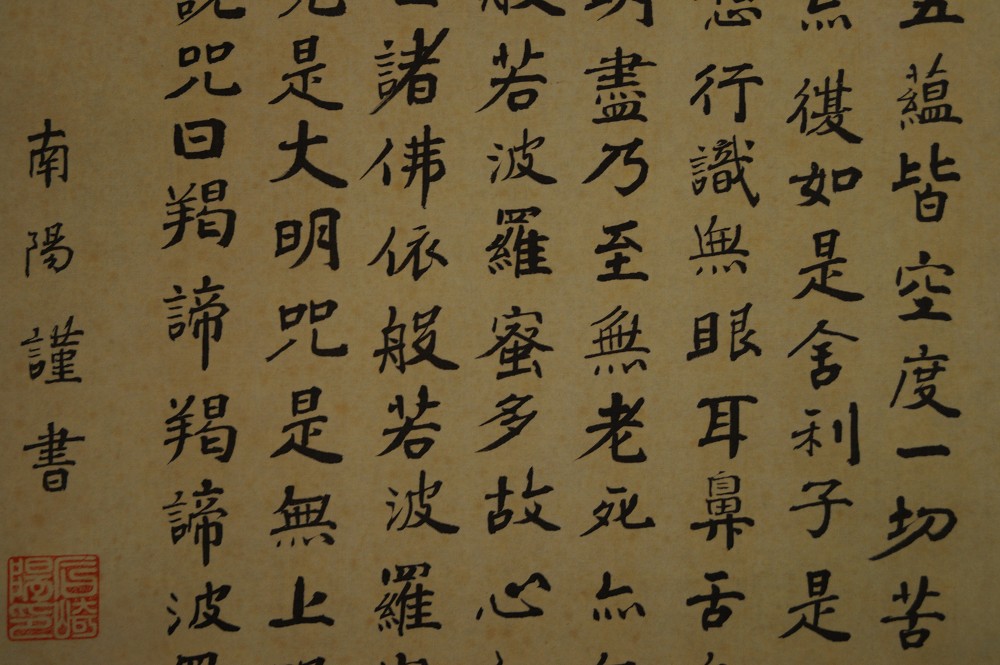 五蘊皆空度一切苦
亦復如是舍利子是
想行識無眼耳鼻舌
明盡乃至無老死亦
般若波羅蜜多故心
諸佛依般若波羅
咒是大明咒是無上
說咒曰羯諦羯諦波
南陽謹書